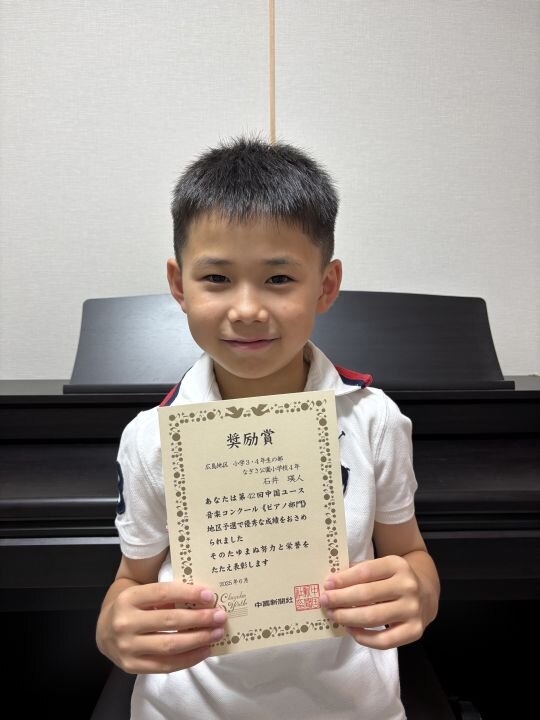 奨励賞
広島地区 小学3・4年生の部
なぎさ公園小学校4年
石井 瑛人
あなたは第42回中国ユース
音楽コンクール《ピアノ部門》
地区予選で優秀な成績をおさめ
られました
そのたゆまぬ努力と栄誉を
たたえ表彰します
2025年6月
中國新聞社